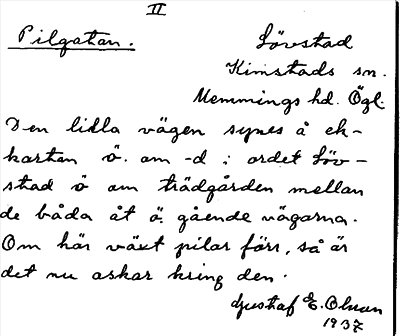 II
Pilgatan.
Lövstad
Kimstads sn.
Memmings hd. Ögl.
Den lilla vägen synes å ek-
kartan ö. om -d i ordet Löv-
stad ö om trädgården mellan
de båda åt ö. gående vägarna.
Om här växt pilar förr, så är
det nu askar kring den.
Gustaf E. Olsson
1937